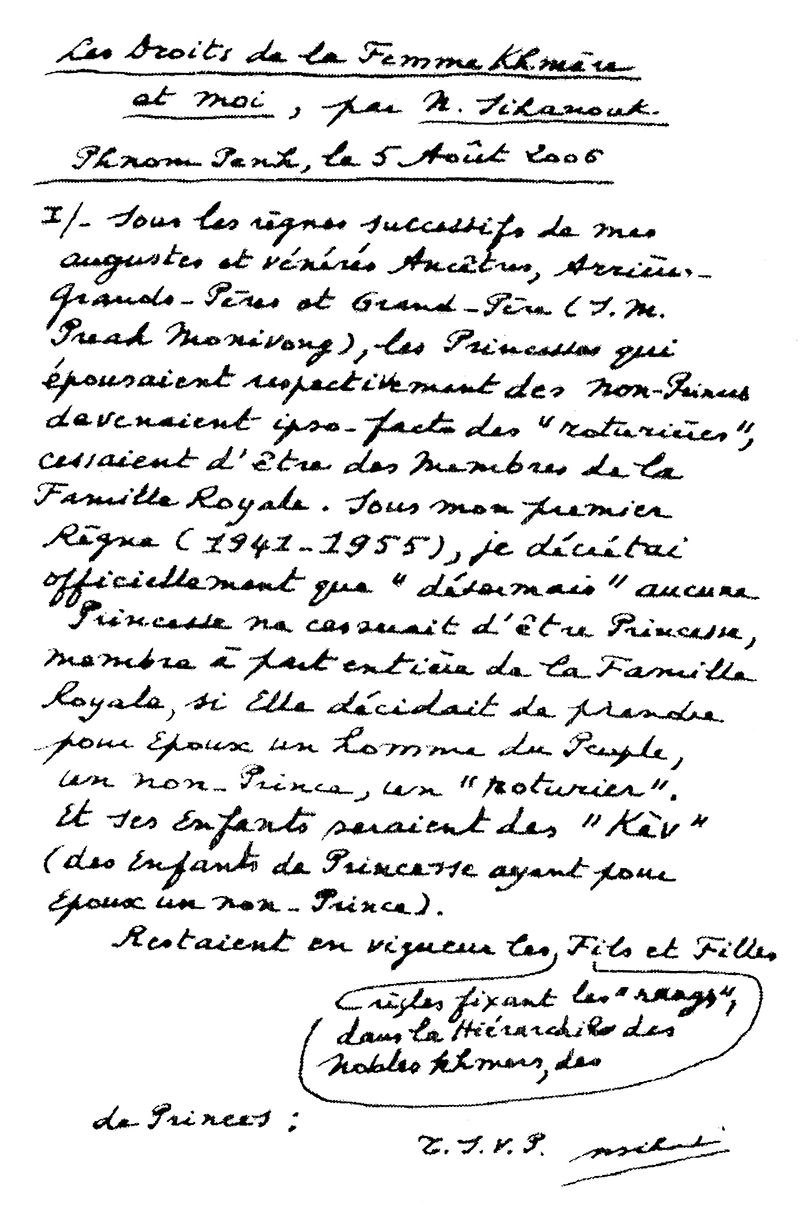 Les Droits de la Femme Khmère
et moi, par N. Sihanouk.
Phnom Penh, le 5 Août 2006
I/- Sous les règnes successifs de mes
augustes et vénérés Ancêtres, Arrière-
Grands-Pères et Grand-Père (S.M.
Preah Monivong), les Princesses qui
épousaient respectivement des non-Princes
devenaient ipso-facto des "roturières",
cessaient d'être des Membres de la
Famille Royale. Sous mon premier
Règne (1941-1955), je décrétai
officiellement que "désormais" aucune
Princesse ne cesserait d'être Princesse,
membre à part entière de la Famille
Royale, si Elle décidait de prendre
pour Epoux un homme du Peuple,
un non-Prince, un "roturier".
Et ses Enfants seraient des "Kèv"
(des Enfants de Princesse ayant pour
Epoux un non-Prince).
Restaient en vigueur les, Fils et Filles
règles fixant les "rangs",
dans la Hiérarchie des
Nobles khmers, des
de Princes :
T.S.V.P.